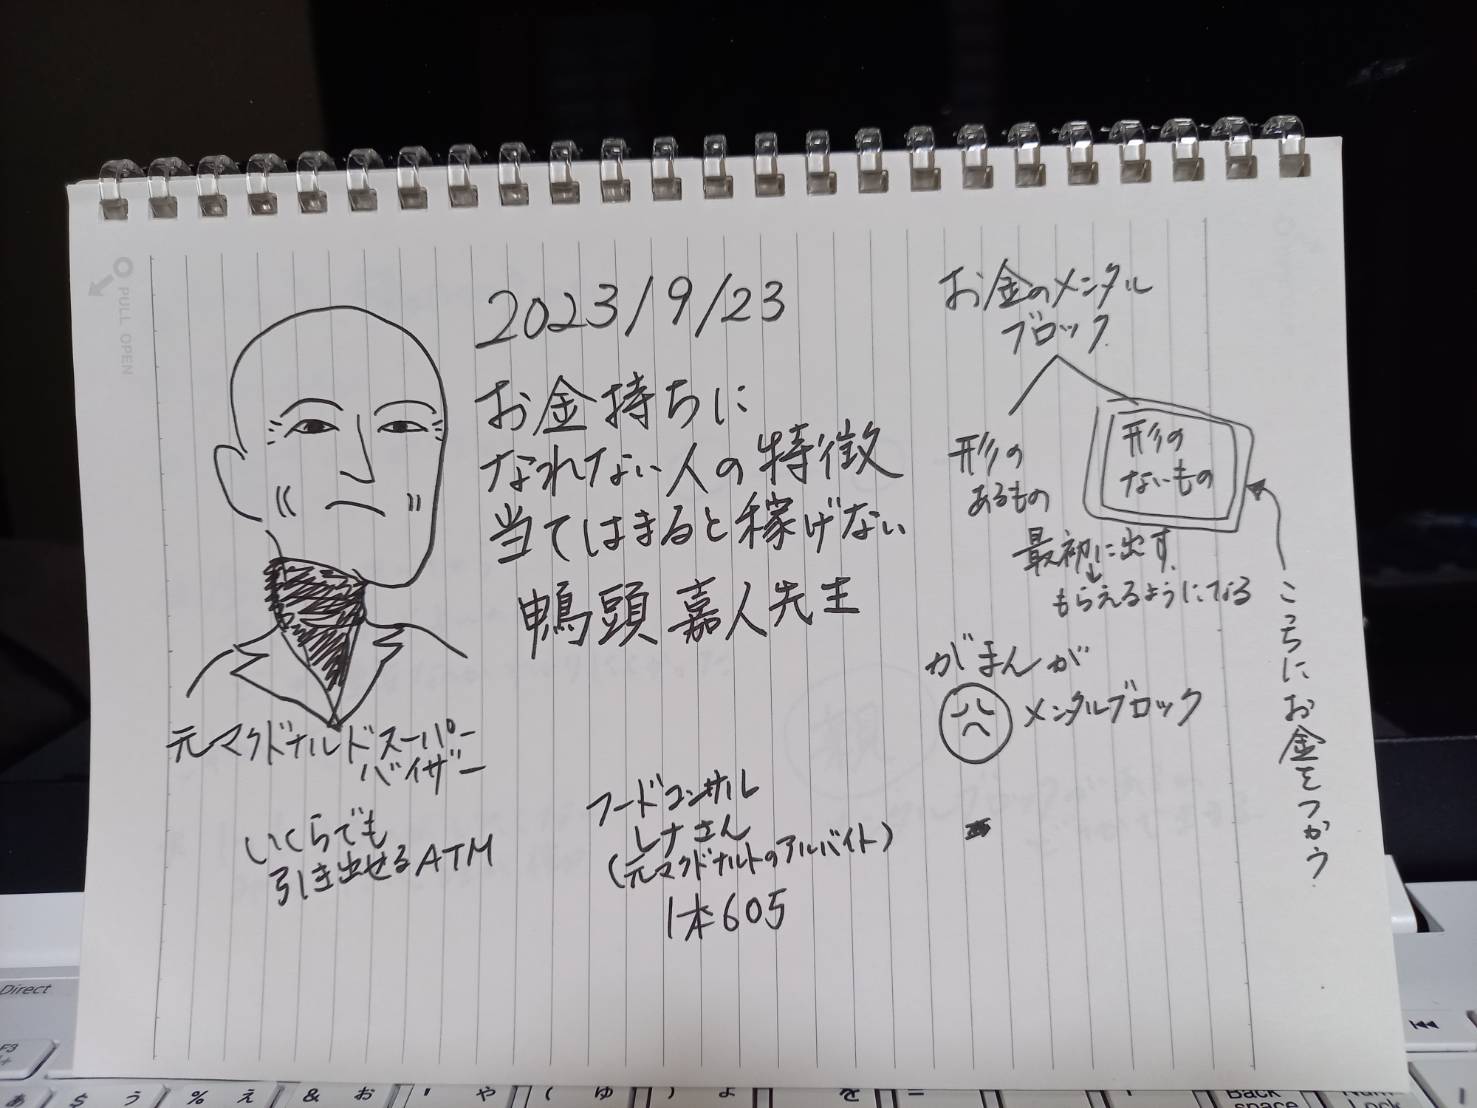 PULL OPEN
2023/9/23
お金持ちに
なれない人の特徴
当てはまると稼げない
鴨頭嘉人先生
元マクドナルドスーパー
バイザー
いくらでも
引き出せるATM
フードコンサル
レナさん
(元マクドナルドのアルバイト)
1本605
お金のメンタル
ブロック
形の
あるもの
形の
ないもの
最初に出す
もらえるようになる
こっちにお金をつかう
がまんが
メンタルブロック
親
Direct
F3
あ
$ う
% え
& お
' や
( ゆ
) よ
を
=
Back
space
Num
Lock